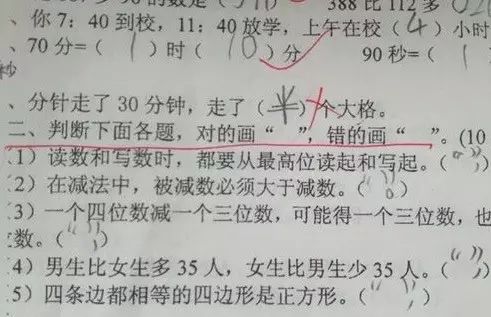 388 比 112 多
、你 7：40 到校，11：40 放学，上午在校（4）小时
、70 分=（ 1 ）时（ 10 ）分 90 秒=（ 1
秒
、分针走了 30 分钟，走了（半）个大格。
二、判断下面各题，对的画“ ”，错的画“ ”。(10
(1）读数和写数时，都要从最高位读起和写起。（“ ”）
(2）在减法中，被减数必须大于减数。（“ ”）
(3）一个四位数减一个三位数，可能得一个三位数，也
数。（“ ”）
(4）男生比女生多 35 人，女生比男生少 35 人。（“ ”）
(5）四条边都相等的四边形是正方形。（“ ”）